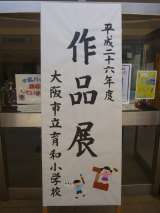 平成二十六年度
作品展
大阪市立育和小学校